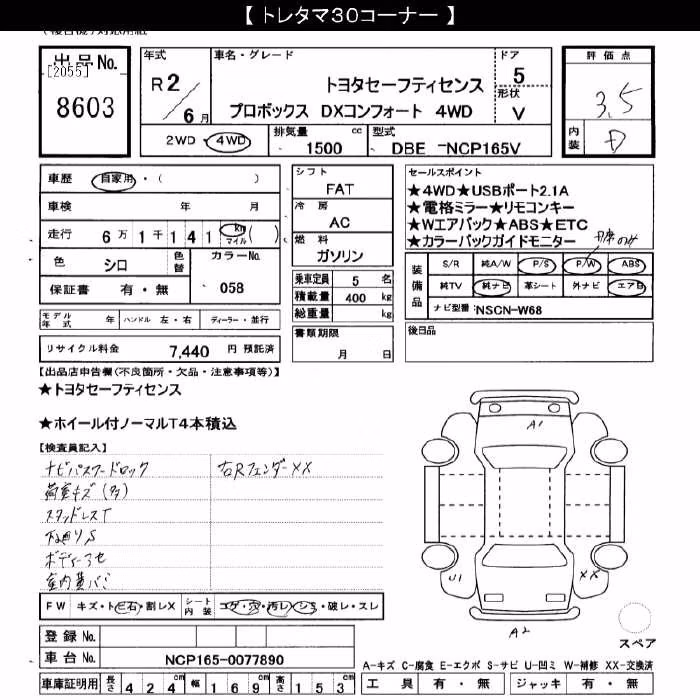 【 トレタマ30コーナー 】
出品No.
[2055]
8603
年式
R2/6月
車名・グレード
トヨタセーフティセンス
プロボックス DXコンフォート 4WD
ドア
5
形状
V
評価点
3.5
内装
D
2WD・4WD
排気量 1500 cc
型式 DBE -NCP165V
車歴 自家用・( )
車検 年 月
走行 6万1千141 km マイル ( )
色 シロ 色替
カラーNo. 058
保証書 有・無
シフト
FAT
冷房
AC
燃料
ガソリン
乗車定員 5 名
積載量 400 kg
総重量 kg
セールスポイント
★4WD★USBポート2.1A
★電格ミラー★リモコンキー
★Wエアバック★ABS★ETC
★カラーバックガイドモニター
装備品
S/R 純A/W P/S P/W ABS
純TV 純ナビ 革シート 外ナビ エアB
ナビ型番: NSCN-W68
モデル年式 年 ハンドル 左・右 ディーラー・並行
書類期限
月 日
後日品
リサイクル料金 7,440 円 預託済
【出品店申告欄(不良箇所・欠品・注意事項等)】
★トヨタセーフティセンス
★ホイール付ノーマルT4本積込
【検査員記入】
ナビパスワードロック
右Rフェンダー××
荷室キズ(多)
スタッドレスT
下廻りS
FW キズ・トビ石・割レX
シート内装 コゲ・穴・汚レ・シミ・破レ・スレ
A1
U1
XX
A2
スペア
登録No.
車台No. NCP165-0077890
A-キズ C-腐食 E-エクボ S-サビ U-凹ミ W-補修 XX-交換済
車庫証明用 長さ 424 cm 幅 169 cm 高さ 153 cm
工具 有・無 ジャッキ 有・無